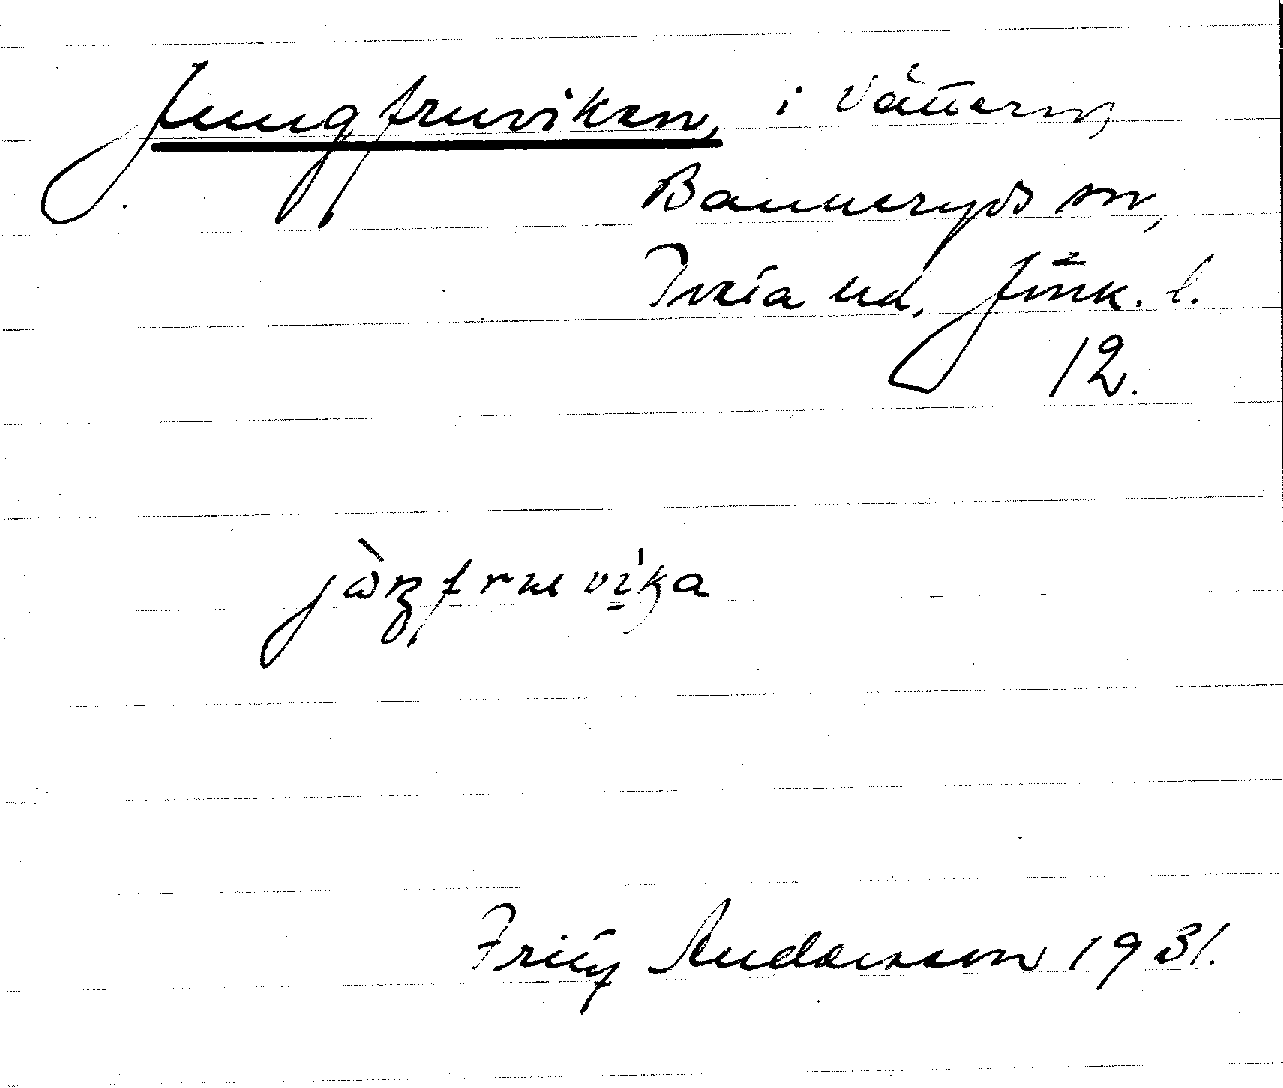 Jungfruviken, i Vättern,
Bankeryds sn,
Tveta hd, Jönk. l.
12.
jòŋfruvi̱ka
Fritz Andersson 1931.